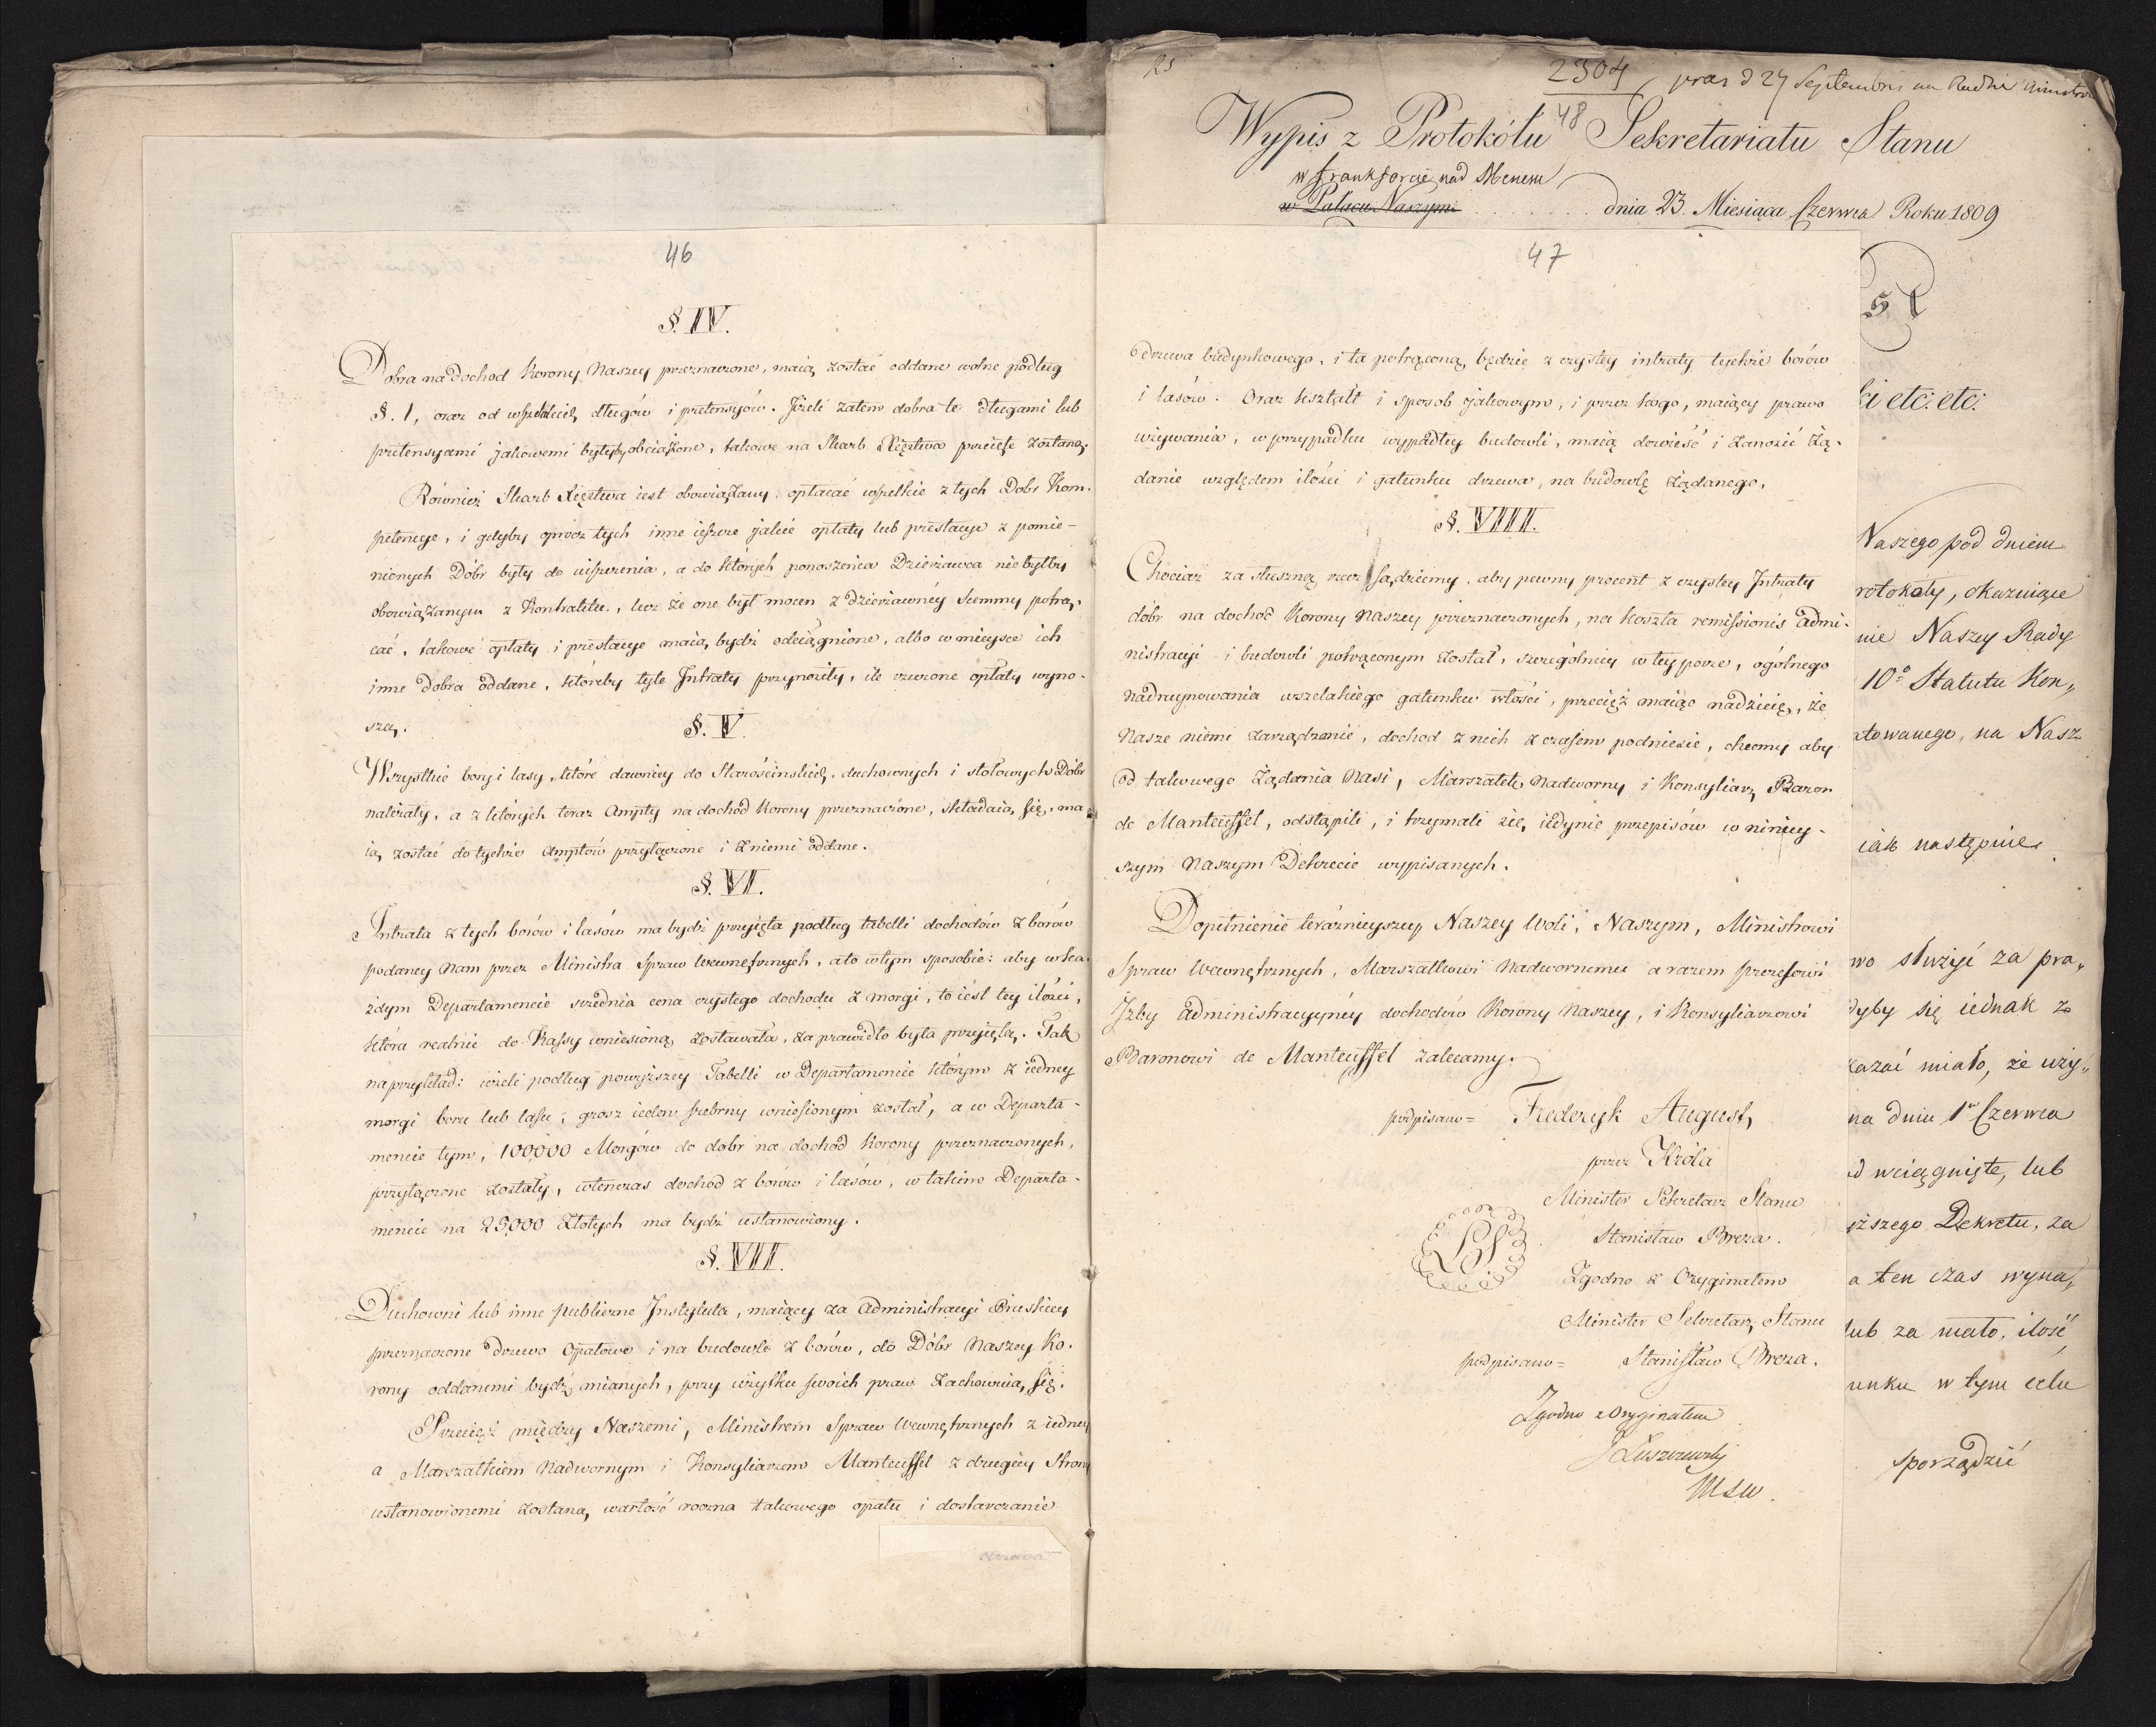 46
§. IV.
Dobra na dochod Korony Naszey przeznaczone, maią zostać oddane wolne podług
§. 1, oraz od wszelkich długów i pretensyów. Jeżeli zatem dobra te długami lub
pretensyami jakowemi byłyby obciążone, takowe na Skarb Xięztwa przeięte zostaną.
Również Skarb Xięztwa iest obowiązany opłacać wszelkie z tych Dobr Kom-
petencye, i gdyby oprócz tych inne ieszcze jakie opłaty lub prestacye z pomie-
nionych Dóbr były do uiszczenia, a do których ponoszenia Dzierżawca nie byłby
obowiązanym z Kontraktu, lecz że one był mocen z dzierżawney summy potrą-
cać, takowe opłaty i prestacye maią bydź odciągnione, albo w mieysce ich
inne dobra oddane, któreby tyle Intraty przynosiły, ile rzeczone opłaty wyno-
szą.
§. V.
Wszystkie bory i lasy, które dawniey do Starościńskich, duchownych i stołowych Dóbr
należały, a z których teraz Ampty na dochód Korony przeznaczone, składaią się, ma-
ią zostać do tychże Amptów przyłączone i z niemi oddane.
§. VI.
Intrata z tych borów i lasów ma bydź przyięta podług tabelli dochodów z borów
podaney Nam przez Ministra Spraw Wewnętrznych, a to w tym sposobie: aby w ka-
żdym Departamencie srzednia cena czystego dochodu z morgi, to iest tey ilości,
która realnie do Kassy wniesioną zostawała, za prawidło była przyiętą. Tak
naprzykład: ieżeli podług powyższey Tabelli w Departamencie którym z iedney
morgi boru lub lasu, grosz ieden srebrny wniesionym został, a w Departa-
mencie tym, 100,000 Morgów do dobr na dochód Korony przeznaczonych,
przyłączone zostały, wtenczas dochód z borów i lasów, w takim Departa-
mencie na 25,000 Złotych ma bydź ustanowiony.
§. VII.
Duchowni lub inne publiczne Instytuta, maiący za Administracyi Pruskiey
przeznaczone drzewo opałowe i na budowle z borów, do Dóbr Naszey Ko-
rony oddanemi bydź mianych, przy użytku swoich praw zachowuią się.
Przecięż między Naszemi, Ministrem Spraw Wewnętrznych z iedney
a Marszałkiem Nadwornym i Konsyliarzem Manteuffel z drugiey Strony
ustanowionemi zostaną, wartość roczna takowego opału i dostarczanie
drzewa
47
drzewa budynkowego, i ta potrąconą będzie z czystey intraty tychże borów
i lasów. Oraz kształt i sposob jakowym, i przez kogo, maiący prawo
używania, w przypadku wypadłey budowli, maią dowieść i zanosić żą-
danie względem ilości i gatunku drzewa, na budowlę żądanego.
§. VIII.
Chociaż za słuszną rzecz sądziemy, aby pewny procent z czystey Intraty
dóbr na dochod Korony Naszey przeznaczonych, na koszta remissionis Admi-
nistracyi i budowli potrąconym został, szczególniey w tey porze, ogólnego
nadruynowania wszelakiego gatunku włości, przecięż maiąc nadzieię, że
Nasze niemi zarządzanie, dochod z nich z czasem podniesie, chcemy aby
od takowego żądania Nasi, Marszałek Nadworny i Konsyliarz Baron
de Manteuffel, odstąpili, i trzymali się iedynie przepisów w niniey-
szym Naszym Dekrecie wypisanych.
Dopełnienie teraźnieyszey Naszey Woli, Naszym, Ministrowi
Spraw Wewnętrznych, Marszałkowi Nadwornemu a razem Prezesowi
Izby Administracyiney dochodów Korony Naszey, i Konsyliarzowi
Baronowi de Manteuffel zalecamy.
podpisano= Frederyk August,
przez Króla
Minister Sekretarz Stanu
LS
Stanisław Breza.
Zgodno z Oryginałem
Minister Sekretarz Stanu
podpisano= Stanisław Breza.
Zgodno z Oryginałem
JŁuszczewski
MSW.
25
2304
48
pras d 27 Septembris na Radzie Ministrów
Wypis z Protokółu Sekretariatu Stanu
w Frankforcie nad Menem
w Pałacu Naszym . . . . . . . dnia 23. Miesiąca Czerwca Roku 1809
ci etc: etc:
Naszego pod dniem
rotokoły, okazuiące
nie Naszey Rady
10º Statutu Kon„
towanego, na Nasz
iak następuie.
wo służyć za pra„
dyby się iednak z
kazać miało, że uży„
na dniu 1º Czerwca
d wciągnięte, lub
ższego Dekretu, za
a ten czas wyna„
lub za mało, ilość
unku w tym celu
sporządzić